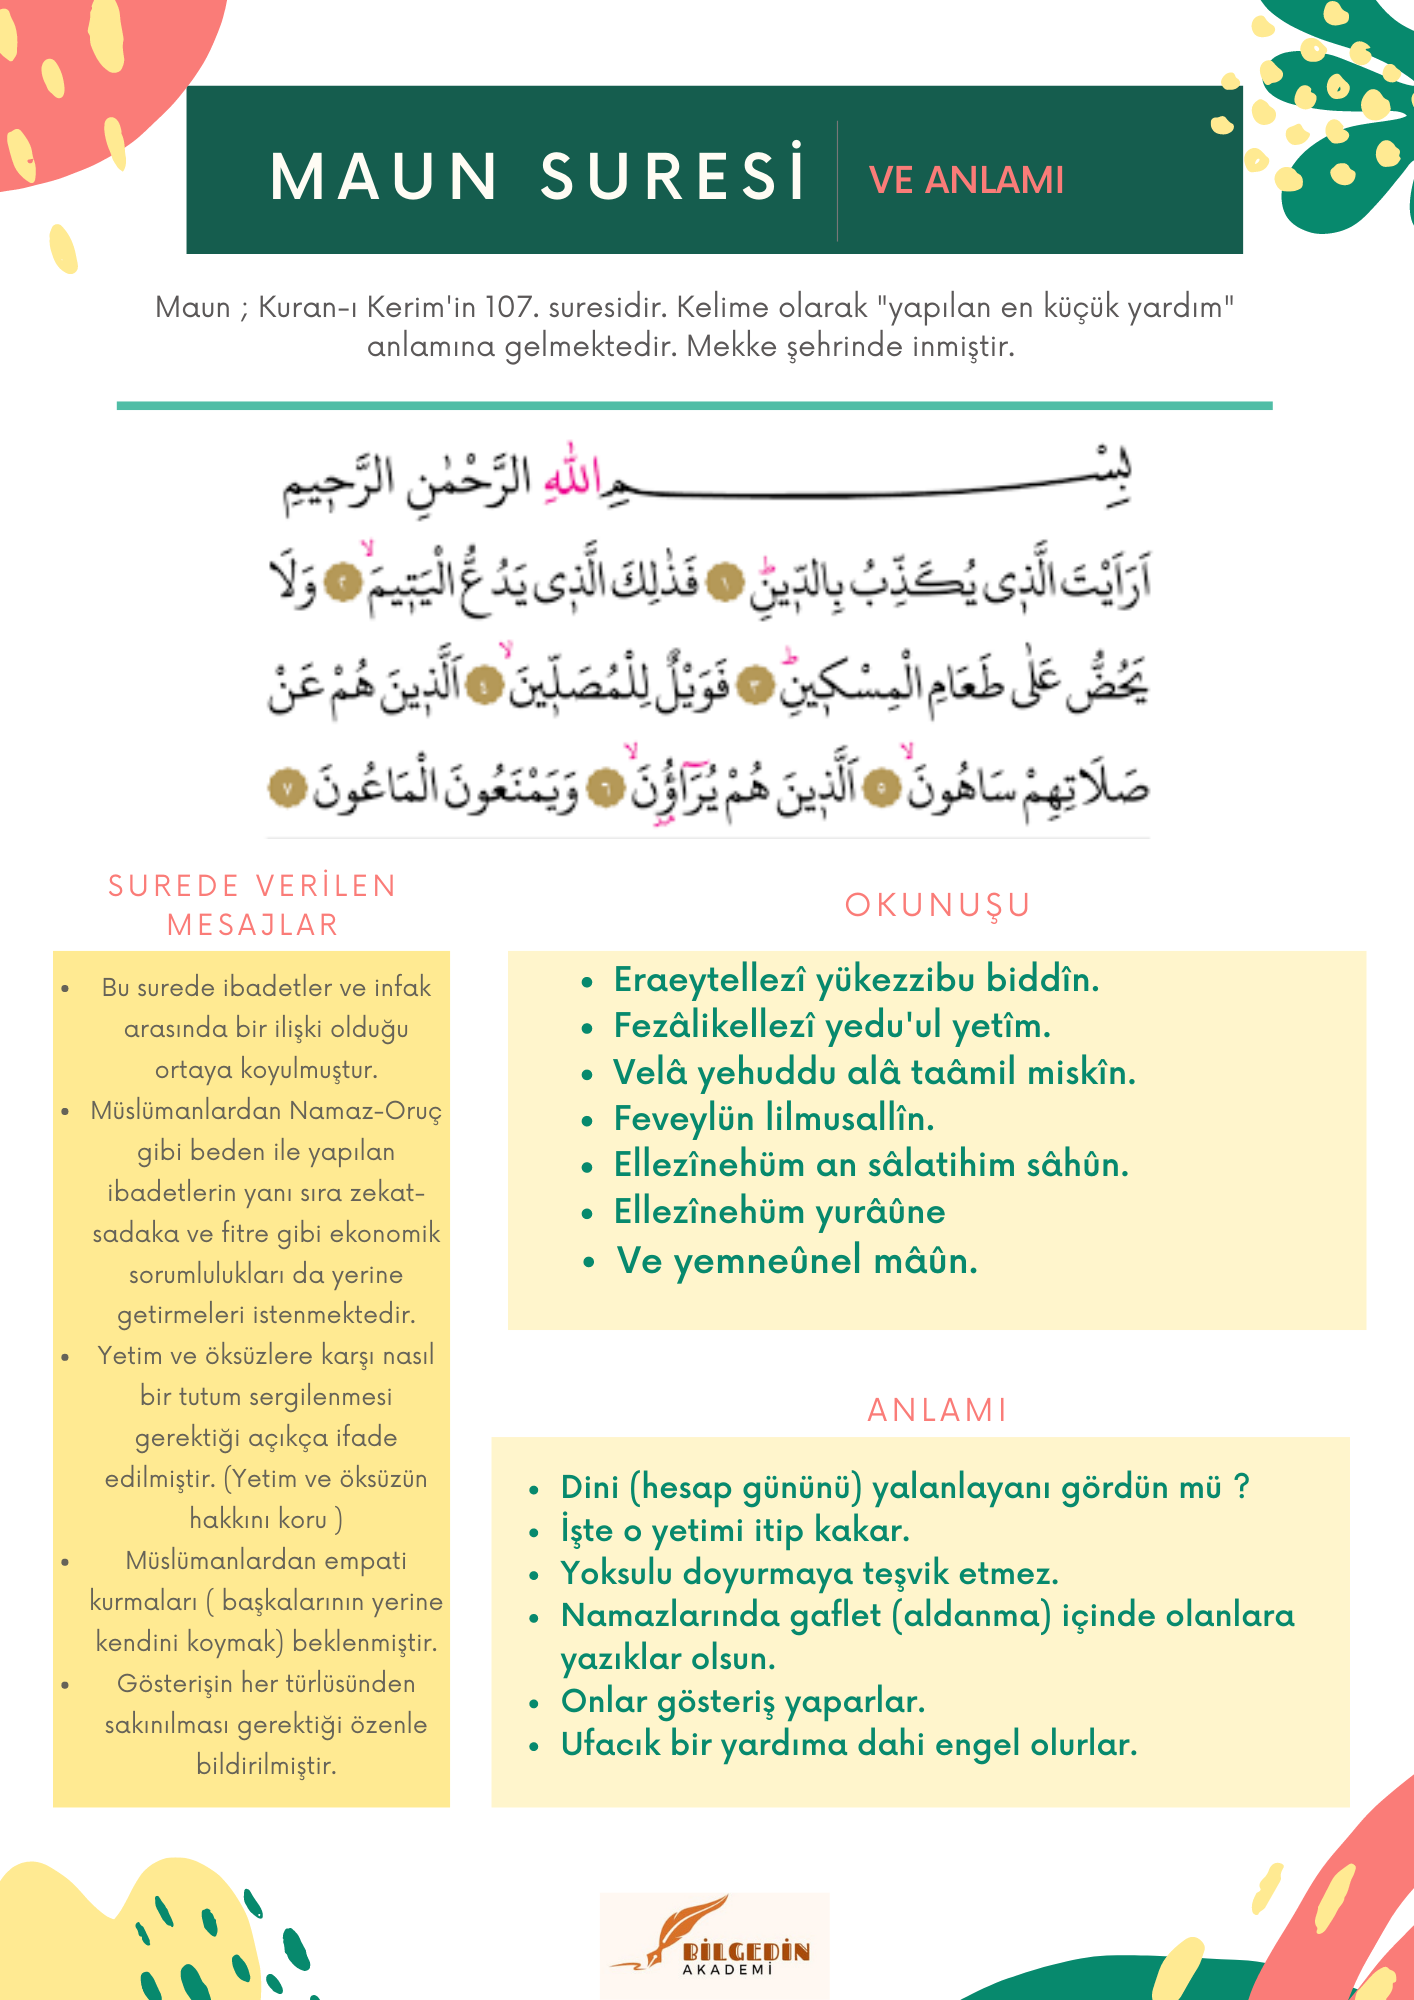 MAUN SURESİ
VE ANLAMI
Maun ; Kuran-ı Kerim'in 107. suresidir. Kelime olarak "yapılan en küçük yardım"
anlamına gelmektedir. Mekke şehrinde inmiştir.
بِسْمِ اللّٰهِ الرَّحْمٰنِ الرَّحٖيمِ
اَرَاَيْتَ الَّذٖى يُكَذِّبُ بِالدّٖينِؕ ﴿١﴾ فَذٰلِكَ الَّذٖى يَدُعُّ الْيَتٖيمَۙ ﴿٢﴾ وَلَا
يَحُضُّ عَلٰى طَعَامِ الْمِسْكٖينِؕ ﴿٣﴾ فَوَيْلٌ لِلْمُصَلّٖينَۙ ﴿٤﴾ اَلَّذٖينَ هُمْ عَنْ
صَلَاتِهِمْ سَاهُونَۙ ﴿٥﴾ اَلَّذٖينَ هُمْ يُرَآؤُنَۙ ﴿٦﴾ وَيَمْنَعُونَ الْمَاعُونَ ﴿٧﴾
SUREDE VERİLEN
MESAJLAR
• Bu surede ibadetler ve infak
arasında bir ilişki olduğu
ortaya koyulmuştur.
• Müslümanlardan Namaz-Oruç
gibi beden ile yapılan
ibadetlerin yanı sıra zekat-
sadaka ve fitre gibi ekonomik
sorumlulukları da yerine
getirmeleri istenmektedir.
• Yetim ve öksüzlere karşı nasıl
bir tutum sergilenmesi
gerektiği açıkça ifade
edilmiştir. (Yetim ve öksüzün
hakkını koru )
• Müslümanlardan empati
kurmaları ( başkalarının yerine
kendini koymak) beklenmiştir.
• Gösterişin her türlüsünden
sakınılması gerektiği özenle
bildirilmiştir.
OKUNUŞU
• Eraeytellezî yükezzibu biddîn.
• Fezâlikellezî yedu'ul yetîm.
• Velâ yehuddu alâ taâmil miskîn.
• Feveylün lilmusallîn.
• Ellezînehüm an sâlatihim sâhûn.
• Ellezînehüm yurâûne
• Ve yemneûnel mâûn.
ANLAMI
• Dini (hesap gününü) yalanlayanı gördün mü ?
• İşte o yetimi itip kakar.
• Yoksulu doyurmaya teşvik etmez.
• Namazlarında gaflet (aldanma) içinde olanlara
yazıklar olsun.
• Onlar gösteriş yaparlar.
• Ufacık bir yardıma dahi engel olurlar.
BİLGEDİN
AKADEMİ